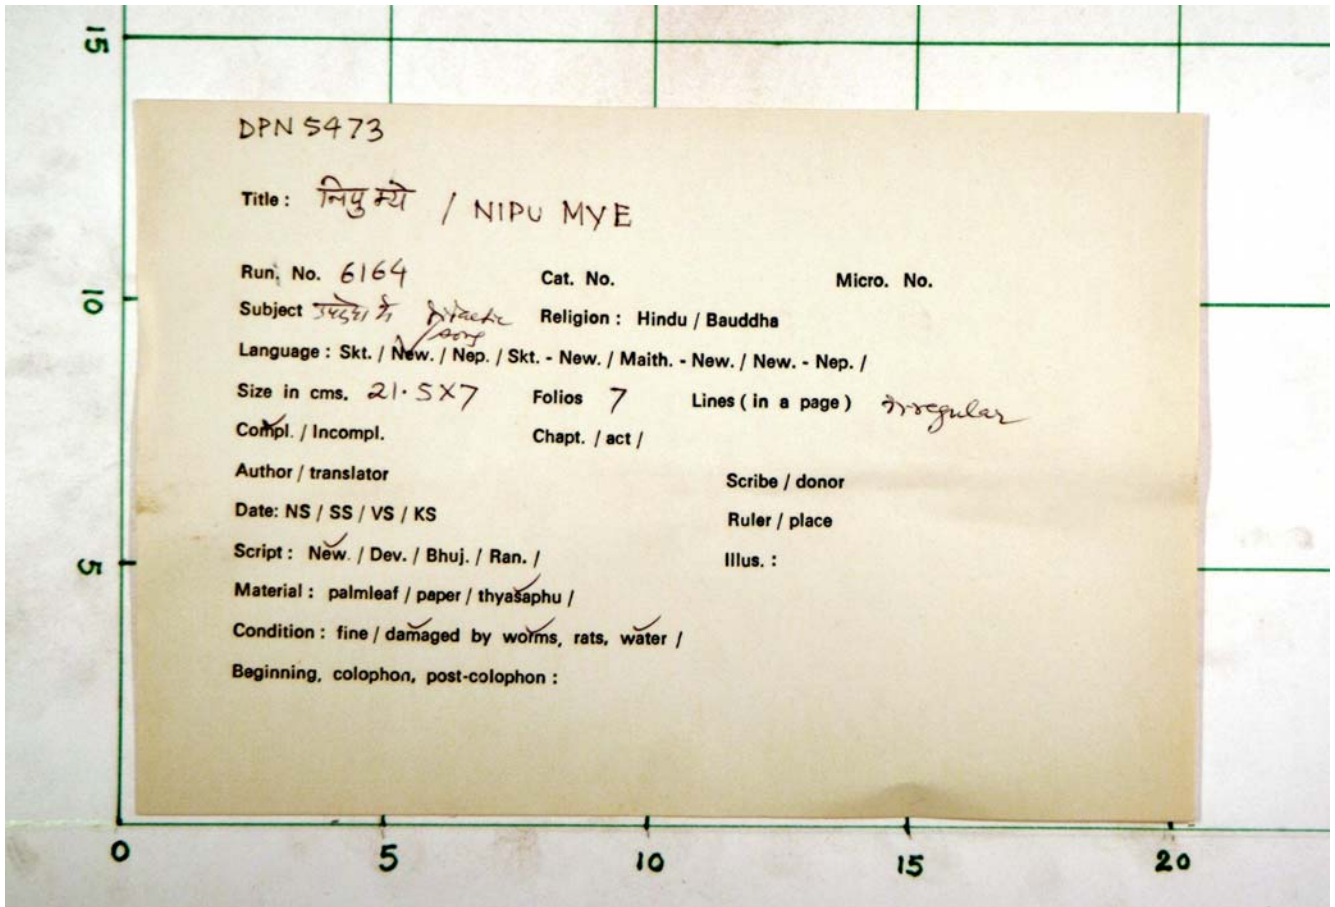 15
DPN 5473
Title : निपु म्ये / NIPU MYE
Run. No. 6164 Cat. No. Micro. No.
10
Subject उपदेश Didactic song Religion : Hindu / Bauddha
Language : Skt. / New. / Nep. / Skt. - New. / Maith. - New. / New. - Nep. /
Size in cms. 21.5X7 Folios 7 Lines ( in a page ) Irregular
Compl. / Incompl. Chapt. / act /
Author / translator Scribe / donor
Date: NS / SS / VS / KS Ruler / place
5
Script : New. / Dev. / Bhuj. / Ran. / Illus. :
Material : palmleaf / paper / thyasaphu /
Condition : fine / damaged by worms, rats, water /
Beginning, colophon, post-colophon :
0 5 10 15 20